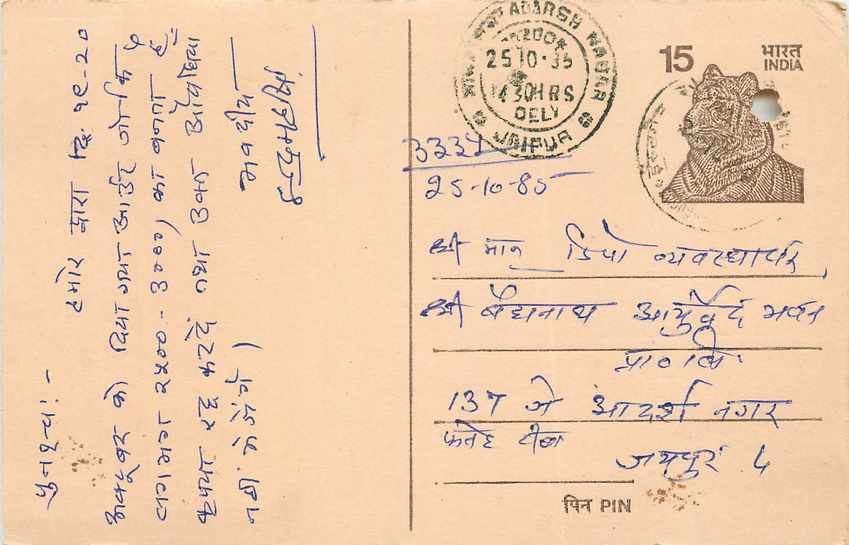 पुनश्च: -
हमारे द्वारा दि. १९-२०
अक्टूबर को दिया गया आर्डर जो कि
लगभग २५०० - ३०००) का बनता है
कृपया रद्द करदें तथा उक्त औषधियां
नही भेजें)
भवदीय
15 भारत
INDIA
ADARSH NAGAR
302004
25 10·85
1430HRS
DELY
JAIPUR
3334
25-10-85
श्री मान् डिपो व्यवस्थापक,
श्री बैद्यनाथ आयुर्वेद भवन
प्रा० लि.
137 जे आदर्श नगर
फतेह टीबा
जयपुर 4
पिन PIN